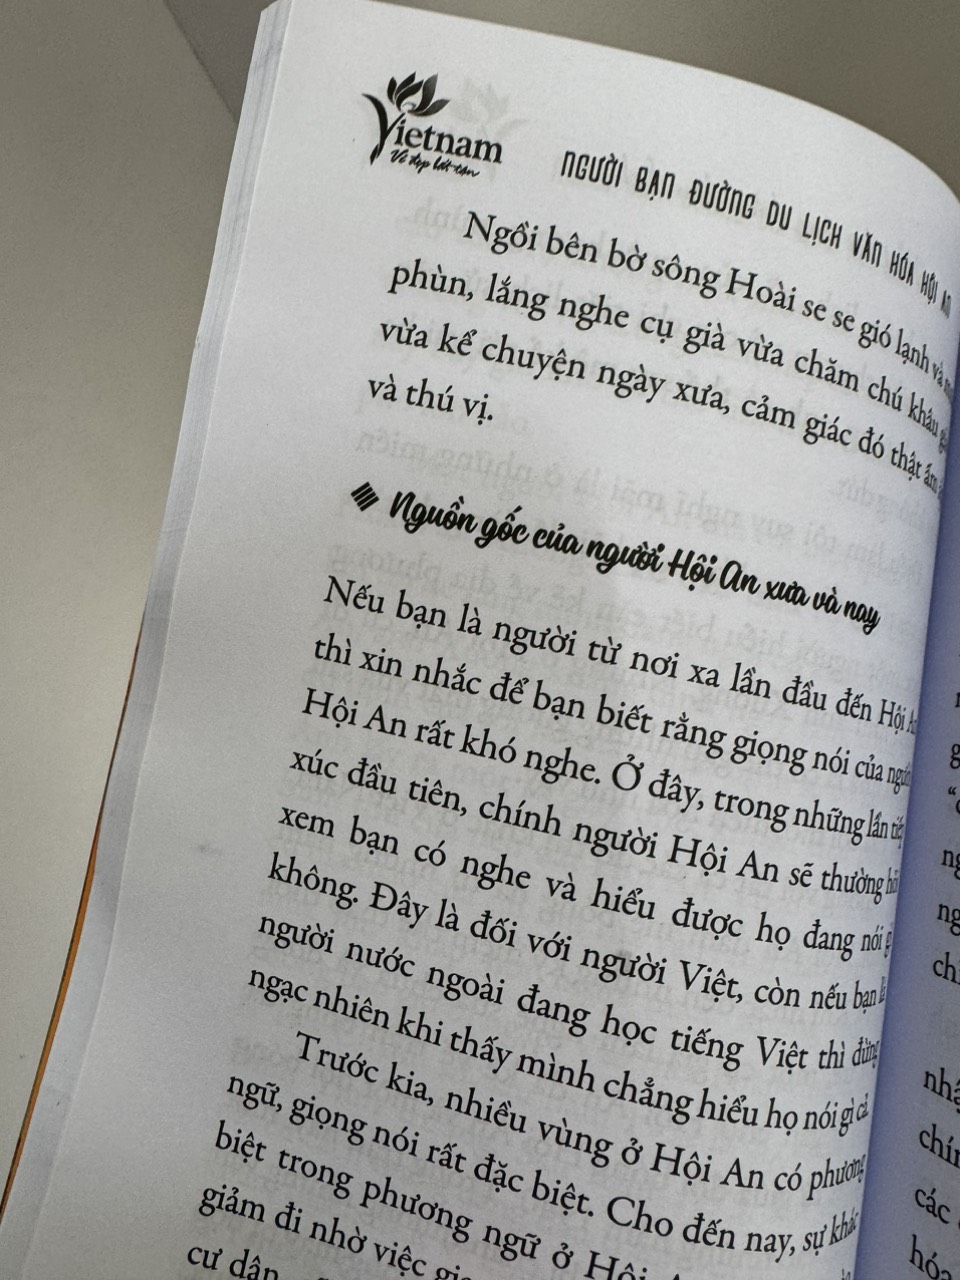 Vietnam
Vẻ đẹp bất tận
NGƯỜI BẠN ĐƯỜNG DU LỊCH VĂN HÓA HỘI AN
Ngồi bên bờ sông Hoài se se gió lạnh và
phùn, lắng nghe cụ già vừa chăm chú khâu
vừa kể chuyện ngày xưa, cảm giác đó thật ấm
và thú vị.
Nguồn gốc của người Hội An xưa và nay
Nếu bạn là người từ nơi xa lần đầu đến Hội An
thì xin nhắc để bạn biết rằng giọng nói của người
Hội An rất khó nghe. Ở đây, trong những lần tiếp
xúc đầu tiên, chính người Hội An sẽ thường hỏi
xem bạn có nghe và hiểu được họ đang nói gì
không. Đây là đối với người Việt, còn nếu bạn là
người nước ngoài đang học tiếng Việt thì đừng
ngạc nhiên khi thấy mình chẳng hiểu họ nói gì cả.
Trước kia, nhiều vùng ở Hội An có phương
ngữ, giọng nói rất đặc biệt. Cho đến nay, sự khác
biệt trong phương ngữ ở Hội
giảm đi nhờ việc
cư dân
nhậ
chín
các
hóa